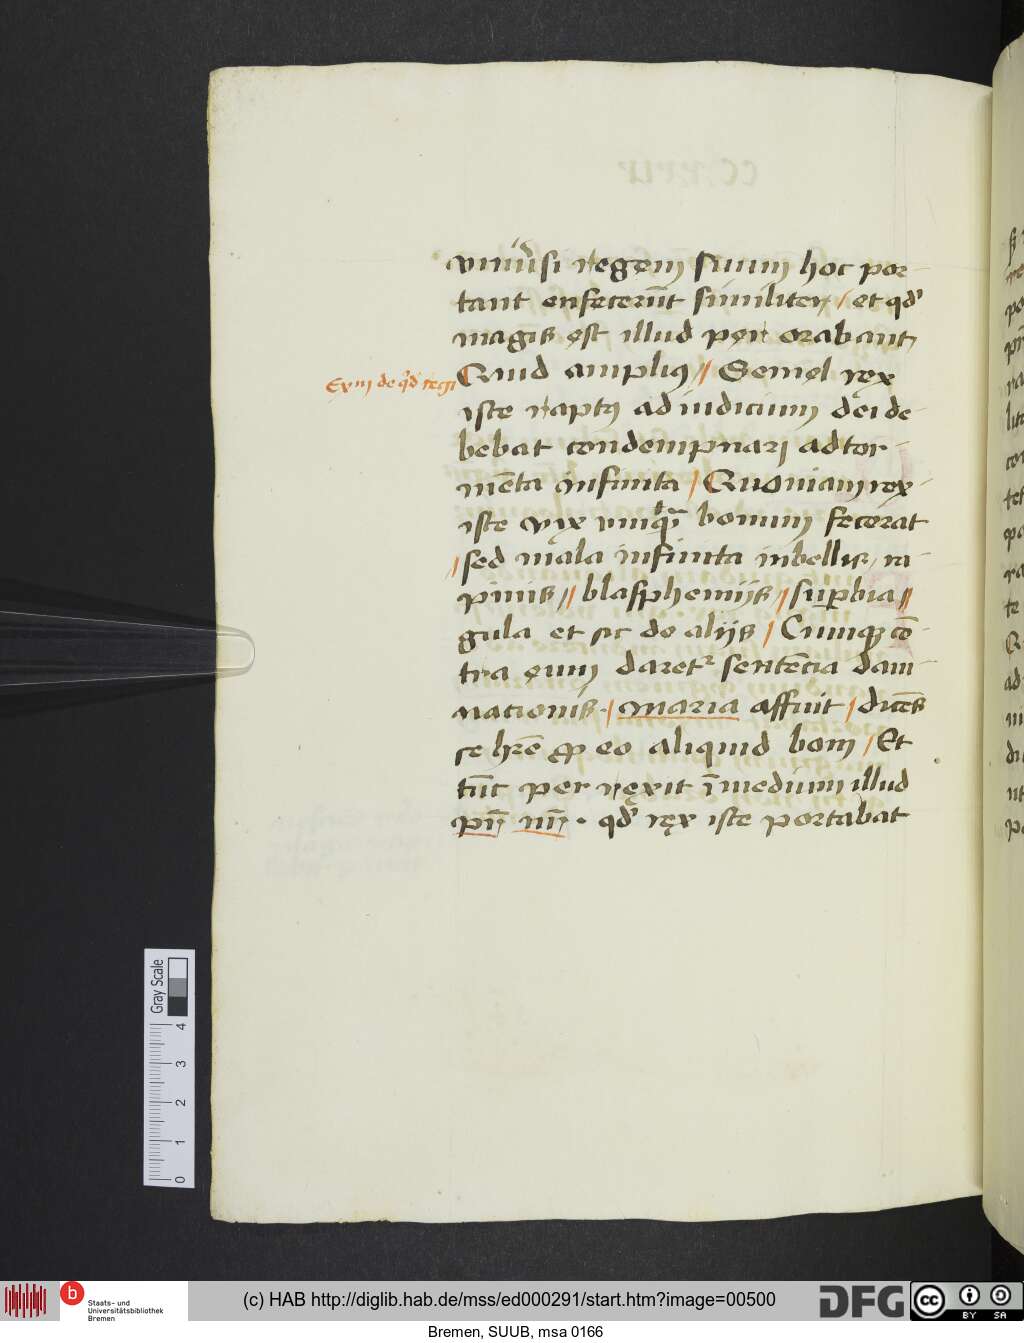 vniu͛si regem suum hoc por-
tant enfecerūt similiter / et qd'
magis est illud per orabant
Exm de q̊d regi
Quid amplius // Semel rex
iste raptus ad iudicium dei de-
bebat condempnari ad tor-
mēta infinita / Quoniam rex
iste vix bonum fecerat
/ sed mala infinita in bellis / ra-
pinis // blasphemijs // suꝑbia //
gula et sic de alijs / Cumqꝫ cō-
tra eum daretr sentēcia dam-
nacionis · / maria affuit / dicēs
se hr̄e ꝓ eo aliquid boni / Et
tūc per rexit ī medium illud
pr̄ nr̄ · qd' rex iste portabat
0 1 2 3 4
Gray Scale
b
Staats- und
Universitätsbibliothek
Bremen
(c) HAB http://diglib.hab.de/mss/ed000291/start.htm?image=00500
DFG
cc BY SA
Bremen, SUUB, msa 0166